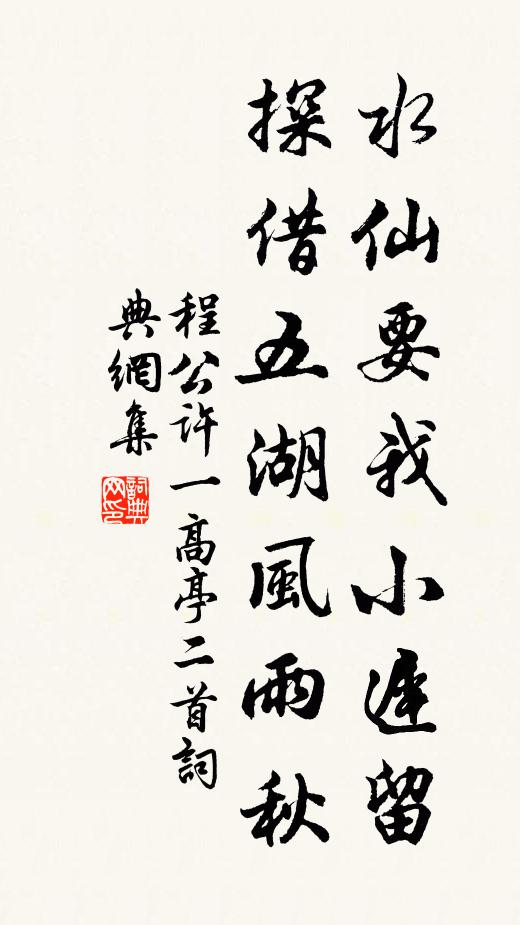 水仙要我小遲留
探借五湖風雨秋
程公許一高亭二首詞
典網集
詞典网印